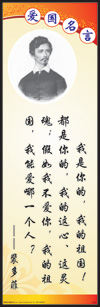 爱国名言
我是你的,我的祖国!
都是你的,我的这心、这灵
魂;假如我不爱你,我的祖
国,我能爱哪一个人?
——裴多菲